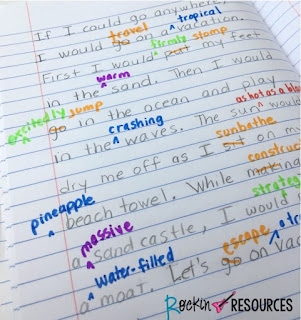 If I could go anywhere,
travel tropical
I would go on a vacation.
firmly stomp
First I would put my feet
warm
in the sand. Then I would
excitedly jump
go in the ocean and play
crashing as hot as a
in the waves. The sun would
sunbathe
dry me off as I sit on my
construct
pineapple beach towel. While making
massive strateg
a sand castle, I would
water-filled escape a tr
a moat. Let's go on vac
Rockin RESOURCES